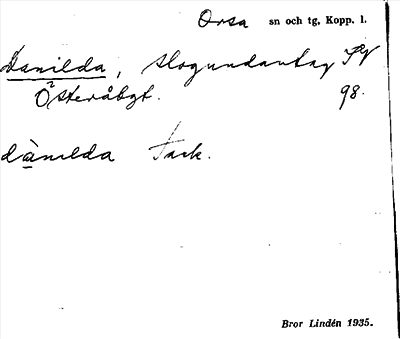 Orsa sn och tg, Kopp. l.
Danilda, skogundantag
Österåbgt. 98.
dànilda Task.
Bror Lindén 1935.